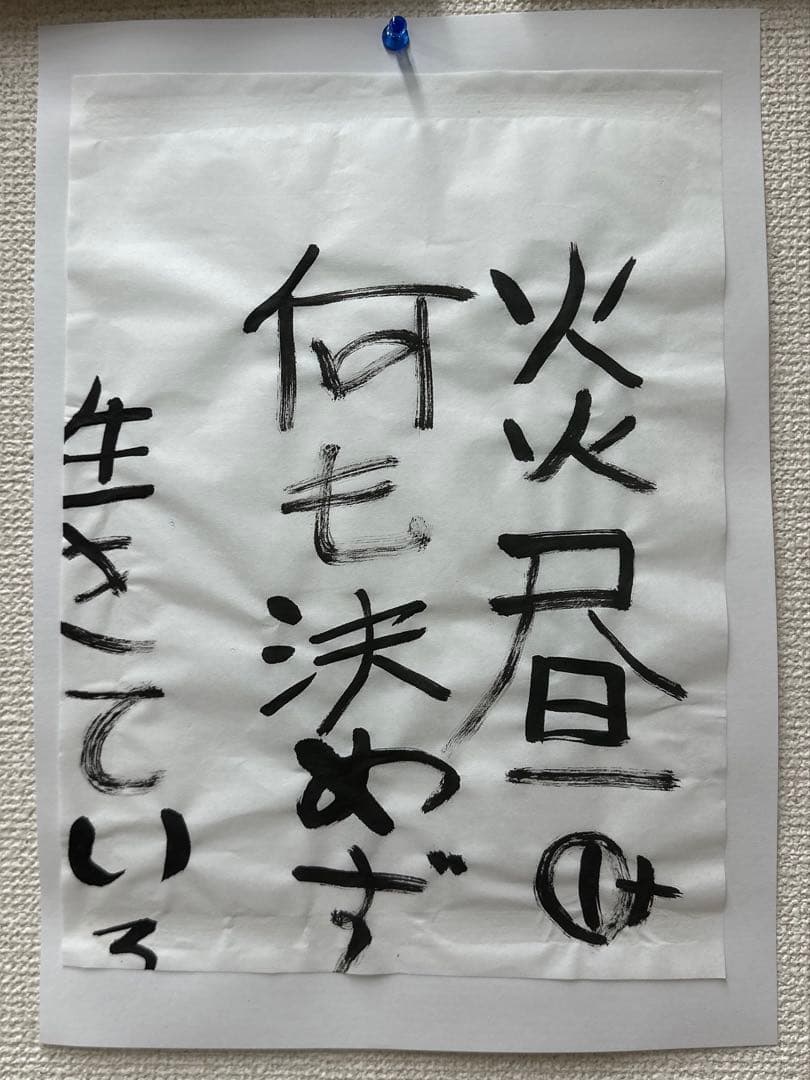 炎昼の
何も決めず
生きている